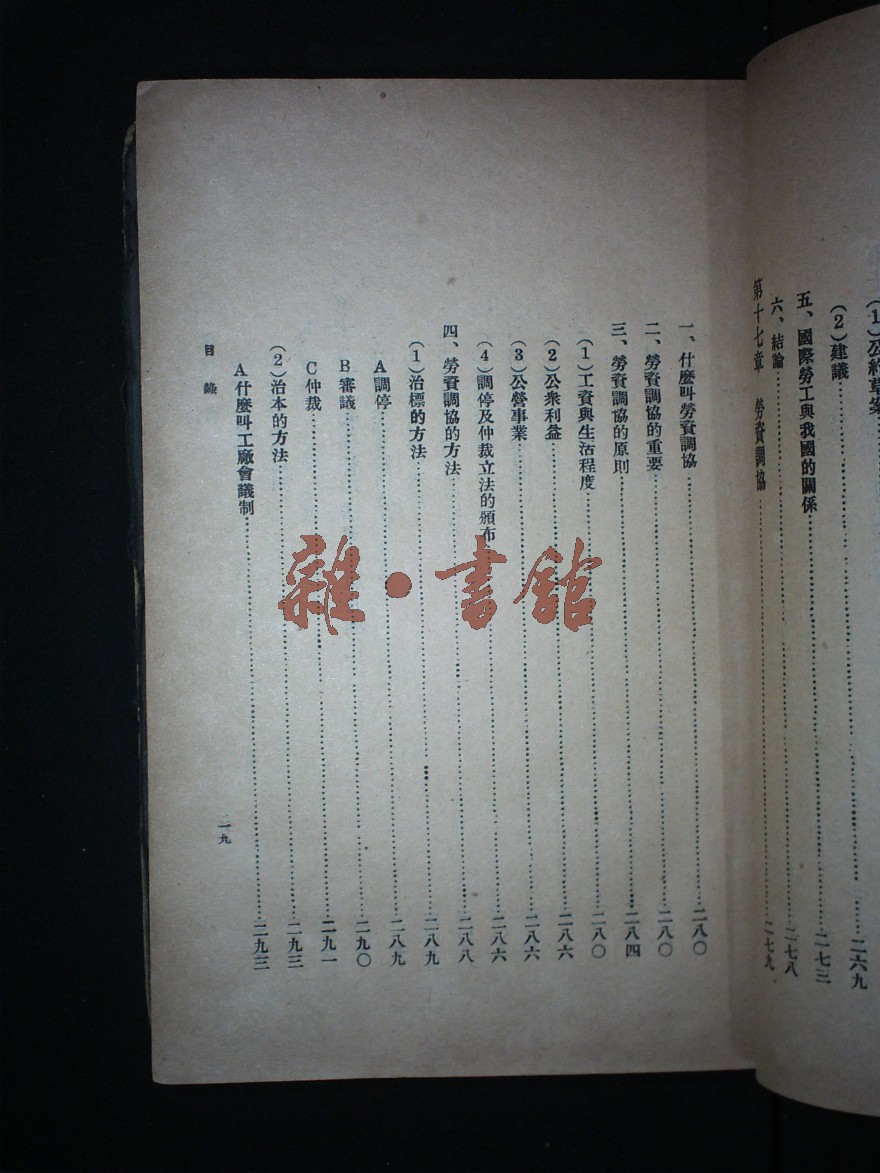 (1)公約草案
(2)建議……二六九
五、國際勞工與我國的關係……二七三
六、結論……二七八
第十七章 勞資調協……二七九
一、什麼叫勞資調協……二八〇
二、勞資調協的重要……二八〇
三、勞資調協的原則……二八四
(1)工資與生活程度……二八〇
(2)公衆利益……二八六
(3)公營事業……二八六
(4)調停及仲裁立法的頒布……二八六
四、勞資調協的方法……二八八
(1)治標的方法……二八九
A調停……二八九
B審議……二九〇
C仲裁……二九一
(2)治本的方法……二九三
A什麼叫工廠會議制……二九三
目錄
一九
雜·書館